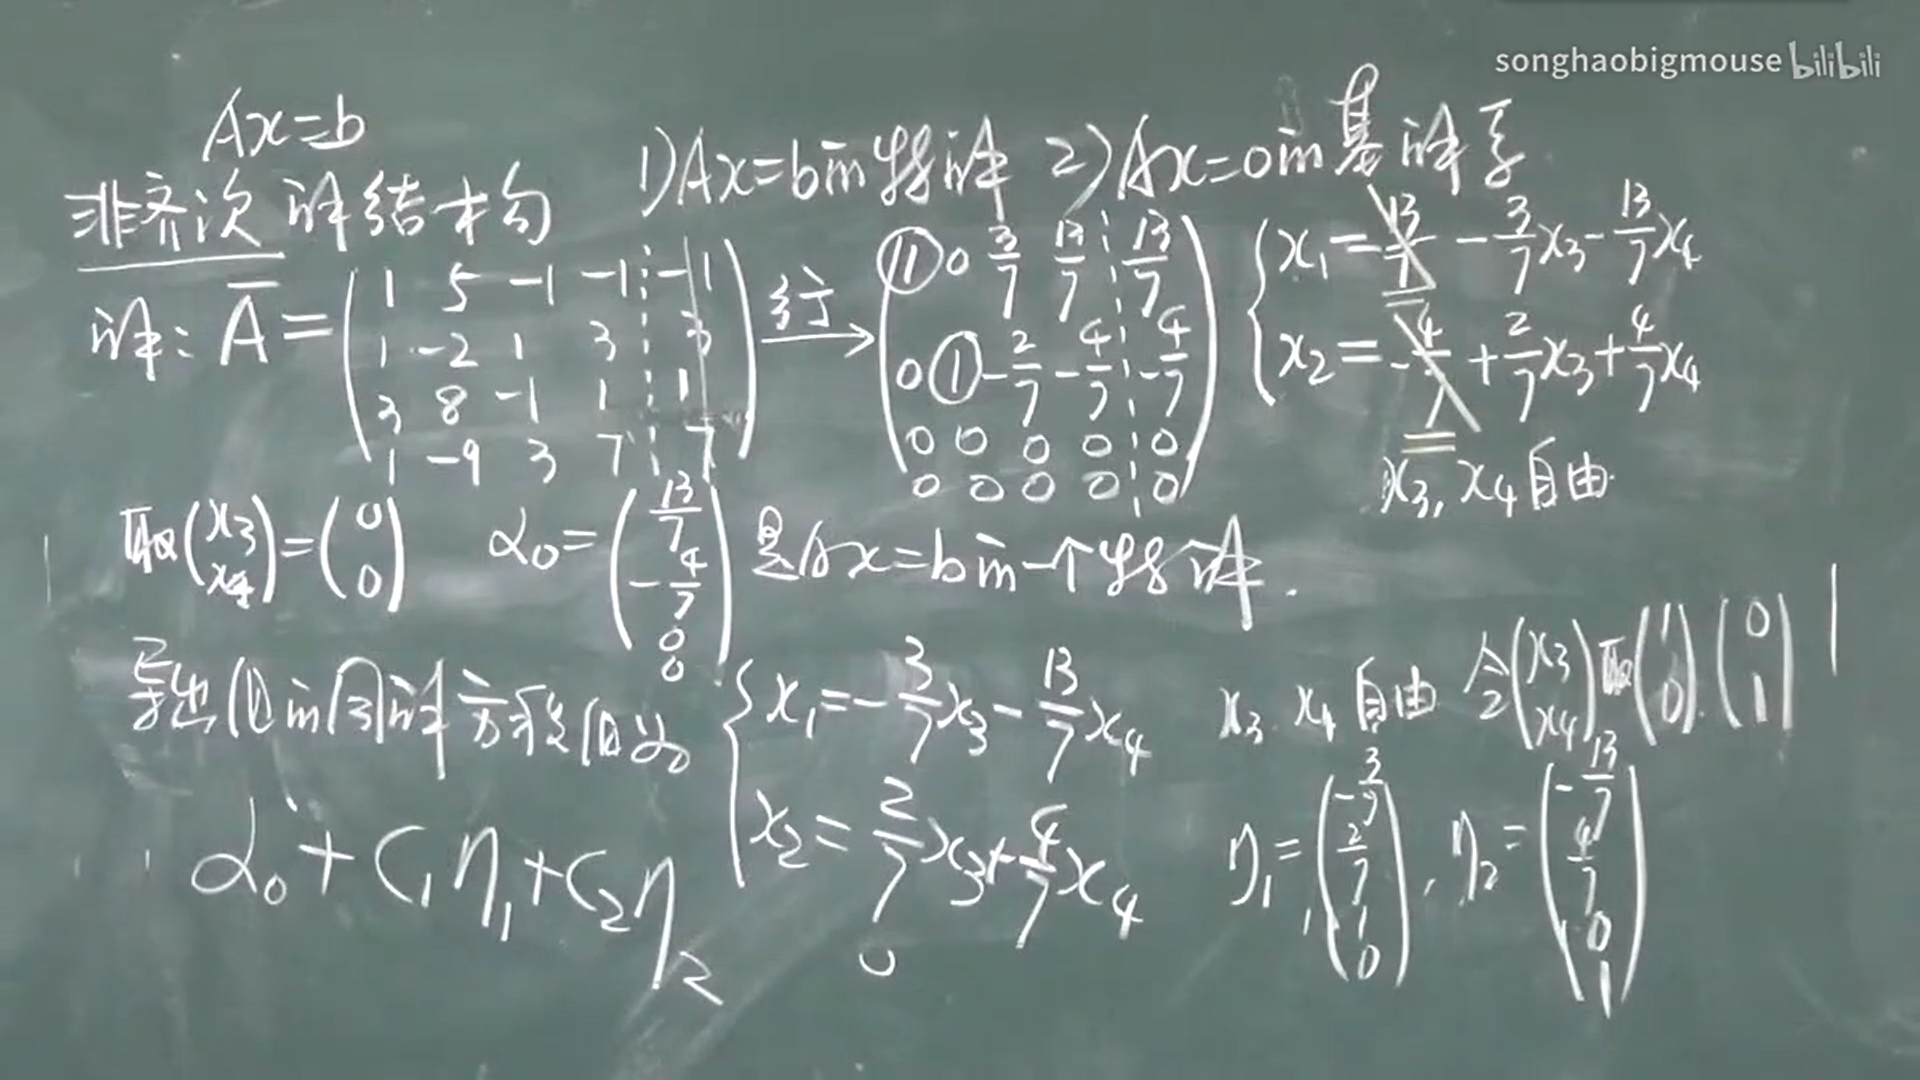 songhaobigmouse bilibili
Ax=b
非齐次 解结构
1) Ax=b的特解 2) Ax=0的基解系
解: A̅ = ( 1 5 -1 -1 ⋮ -1
1 -2 1 3 ⋮ 3
3 8 -1 1 ⋮ 1
1 -9 3 7 ⋮ 7 )
行 →
( ① 0 3/7 13/7 ⋮ 13/7
0 ① -2/7 -4/7 ⋮ -4/7
0 0 0 0 ⋮ 0
0 0 0 0 ⋮ 0 )
{ x₁ = 13/7 - 3/7 x₃ - 13/7 x₄
x₂ = -4/7 + 2/7 x₃ + 4/7 x₄
x₃, x₄ 自由
取 (x₃ x₄) = (0 0) α₀ = (13/7 -4/7 0 0) 是Ax=b的一个特解.
导出组的同解方程组为
{ x₁ = -3/7 x₃ - 13/7 x₄
x₂ = 2/7 x₃ + 4/7 x₄
x₃. x₄ 自由 令 (x₃ x₄) 取 (1 0). (0 1)
η₁ = (-3/7 2/7 1 0), η₂ = (-13/7 4/7 0 1)
α₀ + C₁η₁ + C₂η₂
0